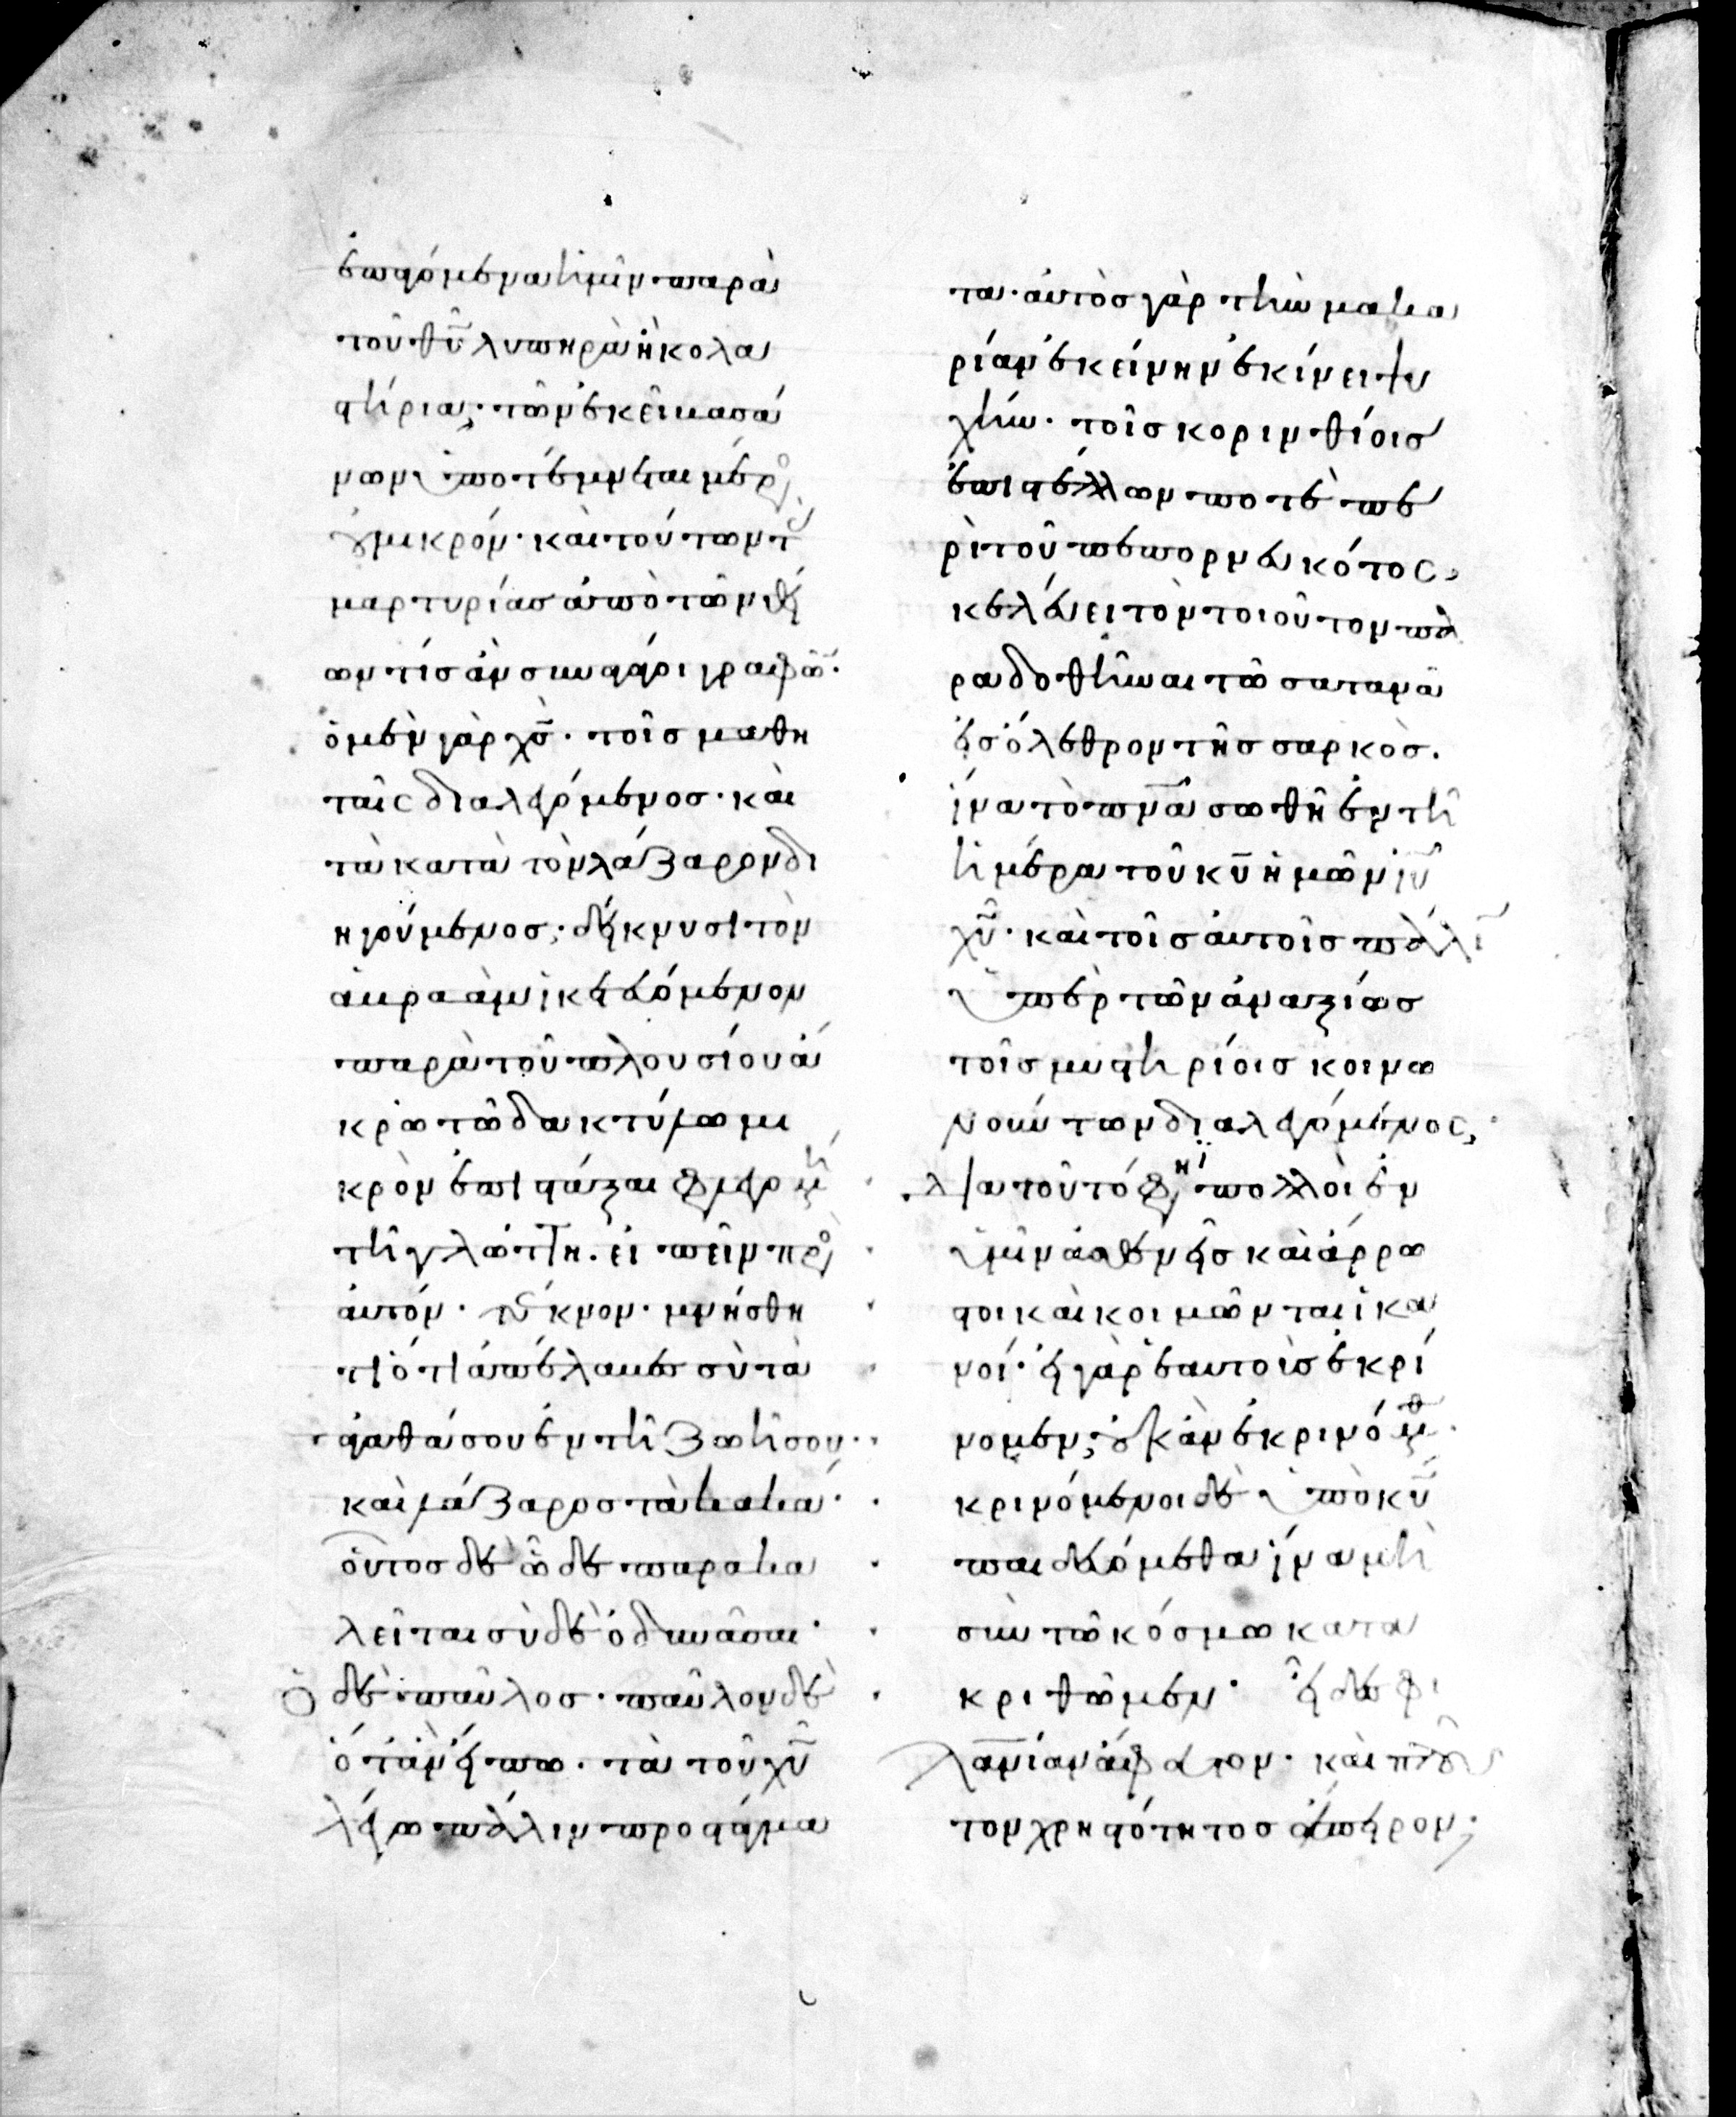 επαγόμενα ἡμῖν παρὰ
τοῦ θῦ λυπηρὰ ἢ κολα
στήρια, τῶν ἐκεῖ βασά
νων ὑποτέμνεται μέρο
ὐ μικρόν· καὶ τούτων τ
μαρτυρίας ἀπὸ τῶν θεί
ων τίς ἂν συναγάγοι γραφῶ·
ὁ μὲν γὰρ χς· τοῖς μαθη
ταῖς διαλεγόμενος· καὶ
τὰ κατὰ τὸν λάζαρον δι
ηγούμενος, δείκνυσι τὸν
ἀβραὰμ ἱκετευόμενον
παρὰ τοῦ πλουσίου ἄ
κρω τῶ δακτύλω μι
κρὸν ἐπιστάξαι φλεγομένη
τῆ γλώττη. εἰπεῖν προ
αὐτόν· τέκνον· μνήσθη
τι ὅτι ἀπέλαβες σὺ τὰ
ἀγαθά σου ἐν τῆ ζωῆ σου·
καὶ λάζαρος τὰ κακά·
οὗτος δὲ ὧδε παρακα
λεῖται σὺ δὲ ὀδυνᾶσαι·
ὁ δὲ παῦλος· παῦλον δὲ
ὅταν εἴπω· τὰ τοῦ χυ
λέγω πάλιν προστάγμα
τα· αὐτὸς γὰρ τὴν μακα
ρίαν ἐκείνην ἐκίνει ψυ
χήν· τοῖς κορινθίοις
ἐπιστέλλων ποτὲ πε
ρὶ τοῦ πεπορνευκότος,
κελεύει τὸν τοιοῦτον πα
ραδοθῆναι τῶ σατανᾶ
εἰς ὄλεθρον τῆς σαρκὸς.
ἵνα τὸ πνᾶ σωθῆ ἐν τῆ
ἡμέρα τοῦ κυ ἡμῶν ιυ
χυ· καὶ τοῖς αὐτοῖς πάλι
ὑπὲρ τῶν ἀναξίως
τοῖς μυστηρίοις κοινω
νούντων διαλεγόμενος,
διατοῦτό φησι πολλοὶ ἐν
ὑμῖν ἀσθενεῖς καὶ ἄρρω
στοι καὶ κοιμῶνται ἱκα
νοί· εἰ γὰρ ἑαυτοὺς ἐκρί
νομεν, οὐκ ἂν ἐκρινόμεθ·
κρινόμενοι δὲ ὑπὸ κυ
παιδευόμεθα ἵνα μὴ
σὺν τῶ κόσμω κατα
κριθῶμεν· εἶδες φι
λανίαν ἄφατον· καὶ πλοῦ
τον χρηστότητος ἄπειρον;